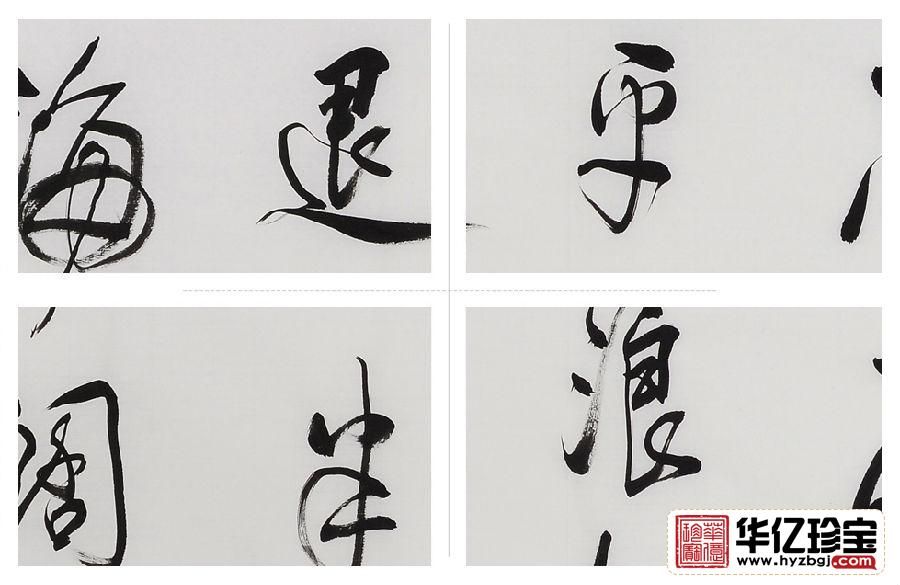 海 退
平
阔 半
浪
华亿珍宝
www.hyzbgj.com